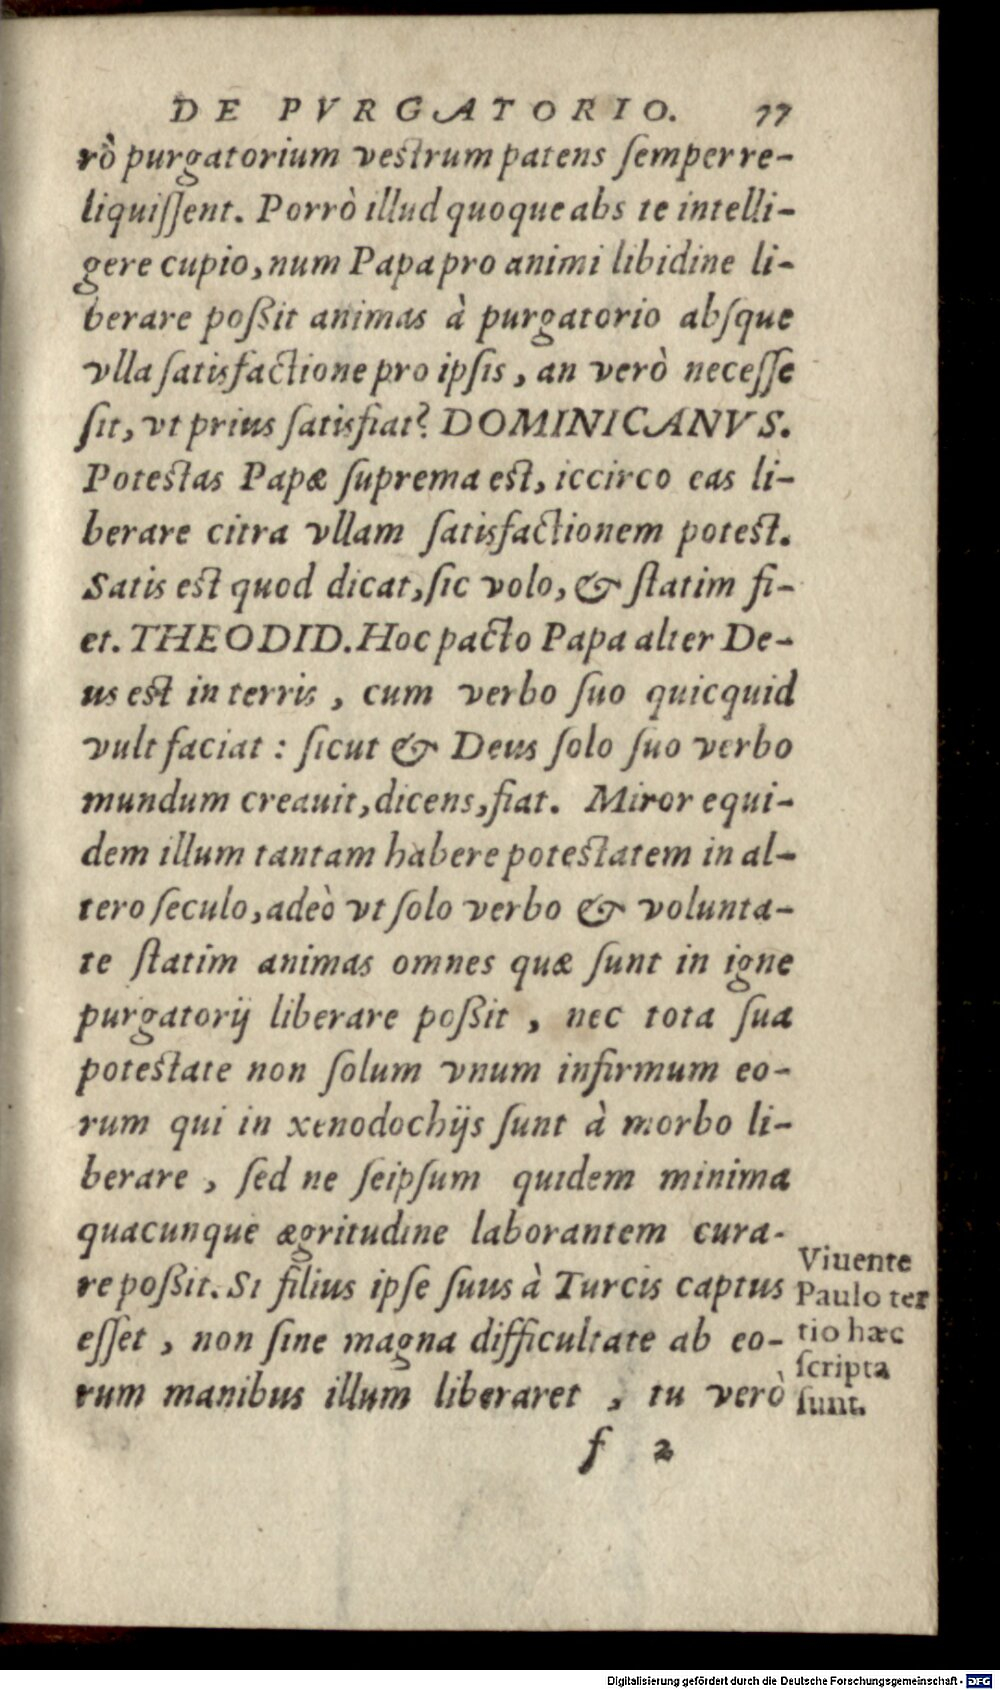 DE PVRGATORIO. 77
rò purgatorium vestrum patens semper re-
liquissent. Porrò illud quoque abs te intelli-
gere cupio, num Papa pro animi libidine li-
berare poßit animas à purgatorio absque
vlla satisfactione pro ipsis, an verò necesse
sit, vt prius satisfiat? DOMINICANVS.
Potestas Papæ suprema est, iccirco eas li-
berare citra vllam satisfactionem potest.
Satis est quod dicat, sic volo, & statim fi-
et. THEODID. Hoc pacto Papa alter De-
us est in terris, cum verbo suo quicquid
vult faciat: sicut & Deus solo suo verbo
mundum creauit, dicens, fiat. Miror equi-
dem illum tantam habere potestatem in al-
tero seculo, adeò vt solo verbo & volunta-
te statim animas omnes quæ sunt in igne
purgatorij liberare poßit, nec tota sua
potestate non solum vnum infirmum eo-
rum qui in xenodochijs sunt à morbo li-
berare, sed ne seipsum quidem minima
quacunque ægritudine laborantem cura-
re poßit. Si filius ipse suus à Turcis captus
esset, non sine magna difficultate ab eo-
rum manibus illum liberaret, tu verò
Viuente
Paulo ter
tio hæc
scripta
sunt.
f 2
Digitalisierung gefördert durch die Deutsche Forschungsgemeinschaft - DFG